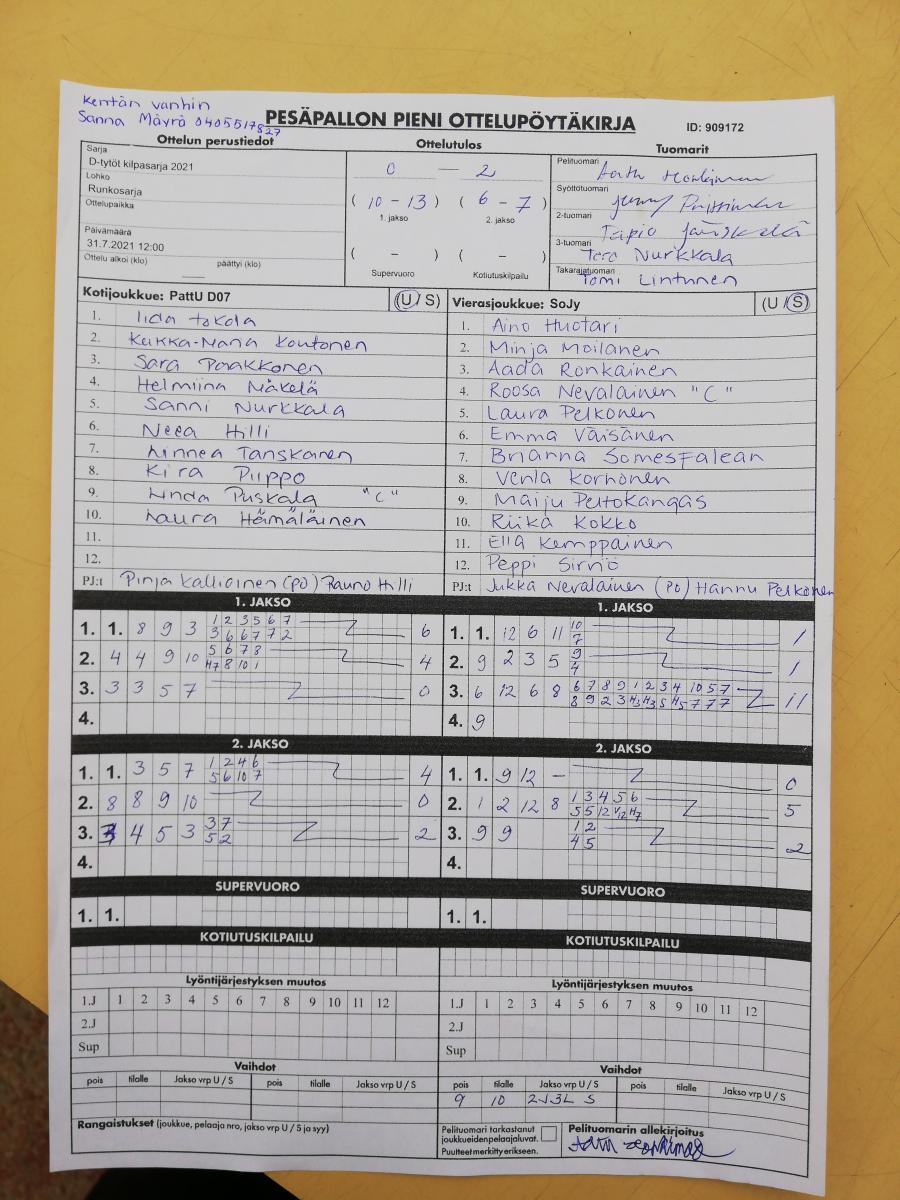 Kentän vanhin
Sanna Mäyrä 0405517827
PESÄPALLON PIENI OTTELUPÖYTÄKIRJA
ID: 909172
Ottelun perustiedot
Sarja
D-tytöt kilpasarja 2021
Lohko
Runkosarja
Ottelupaikka
Päivämäärä
31.7.2021 12:00
Ottelu alkoi (klo) päättyi (klo)
Ottelutulos
0 — 2
( 10 - 13 ) ( 6 - 7 )
1. jakso 2. jakso
( - ) ( - )
Supervuoro Kotiutuskilpailu
Tuomarit
Pelituomari
Syöttötuomari
Jenny
2-tuomari
Tapio Jääskelä
3-tuomari
Tero Nurkkala
Takarajatuomari
Tomi Lintunen
Kotijoukkue: PattU D07 (U / S)
1. Iida Tokola
2. Kukka-Maria Kontonen
3. Sara Porkkonen
4. Helmiina Mäkelä
5. Sanni Nurkkala
6. Neea Hilli
7. Linnea Tanskanen
8. Kira Piippo
9. Linda Puskala "C"
10. Laura Hämäläinen
11.
12.
PJ:t Pinja Kallioinen (PO) Rauno Hilli
Vierasjoukkue: SoJy (U / S)
1. Aino Huotari
2. Minja Moilanen
3. Aada Ronkainen
4. Roosa Nevalainen "C"
5. Laura Pelkonen
6. Emma Väisänen
7. Brianna Somesfalean
8. Venla Korhonen
9. Maiju Peltokangas
10. Riika Kokko
11. Ella Kemppainen
12. Peppi Sirviö
PJ:t Jukka Nevalainen (PO) Hannu Pelkonen
1. JAKSO
1. 1. 8 9 3 1 2 3 5 6 7 6
3 6 6 7 7 2
2. 4 4 9 10 5 6 7 8 4
H7 8 10 1
3. 3 3 5 7 0
4.
1. JAKSO
1. 1. 12 6 11 10 1
7
2. 9 2 3 5 9 1
4
3. 6 12 6 8 6 7 8 9 1 2 3 4 10 5 7 11
8 9 2 3 H3 H3 5 H5 7 7 7
4. 9
2. JAKSO
1. 1. 3 5 7 1 2 4 6 4
5 6 10 7
2. 8 8 9 10 0
3. 4 5 3 3 7 2
5 2
4.
2. JAKSO
1. 1. 9 12 - 0
2. 1 2 12 8 1 3 4 5 6 5
5 5 12 V12 H7
3. 9 9 1 2 2
4 5
4.
SUPERVUORO
1. 1.
SUPERVUORO
1. 1.
KOTIUTUSKILPAILU
KOTIUTUSKILPAILU
Lyöntijärjestyksen muutos
1.J 1 2 3 4 5 6 7 8 9 10 11 12
2.J
Sup
Lyöntijärjestyksen muutos
1.J 1 2 3 4 5 6 7 8 9 10 11 12
2.J
Sup
Vaihdot
pois tilalle Jakso vrp U / S pois tilalle Jakso vrp U / S
Vaihdot
pois tilalle Jakso vrp U / S pois tilalle Jakso vrp U / S
9 10 2J3L S
Rangaistukset (joukkue, pelaaja nro, jakso vrp U / S ja syy)
Pelituomari tarkastanut
joukkueiden pelaajaluvat.
Puutteet merkitty erikseen.
Pelituomarin allekirjoitus